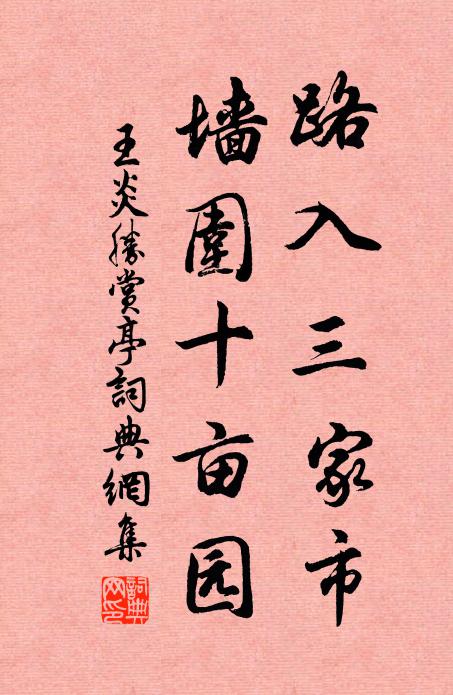 路入三家市
墙圍十亩园
王炎勝賞亭詞典網集
詞典網印